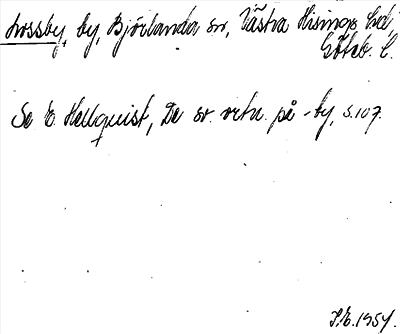 Lossby, by, Björlanda sn, Västra Hisings hd,
Göteb. l.
Se E. Hellquist, De sv. ortn. på -by, s. 107.
I.E. 1954.